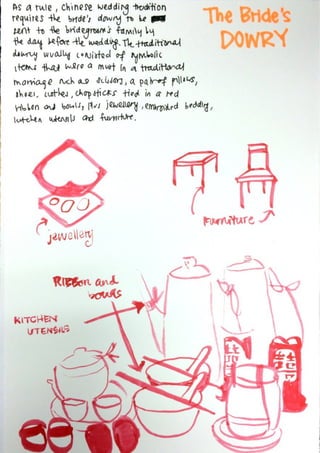 The Bride's
DOWRY
As a rule, Chinese wedding tradition
requires the bride's dowry to be
sent to the bridegroom's family by
the day before the wedding. The traditional
dowry usually consisted of symbolic
items that were a must in a traditional
marriage such as scissors, a pair of pillows,
shoes, clothes, chopsticks tied in a red
ribbon and bowls, plus jewellery, embroided bedding,
kitchen utensils and furniture.
jewellery
Furniture
Ribbon and
bowls
KITCHEN
UTENSILS
囍
囍